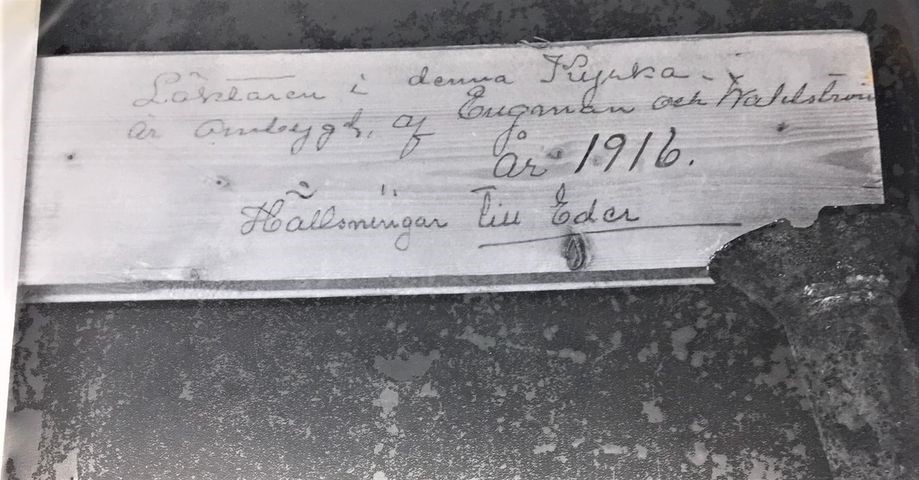 Läktaren i denna Kyrka.
är ombygd, af Engman och Wahlström
år 1916.
Hällsningar till Eder